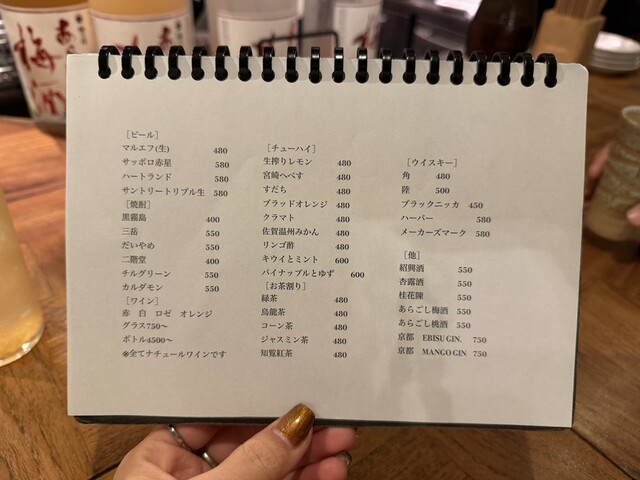 [ビール]
マルエフ(生) 480
サッポロ赤星 580
ハートランド 580
サントリートリプル生 580
[焼酎]
黒霧島 400
三岳 550
だいやめ 550
二階堂 400
チルグリーン 550
カルダモン 550
[ワイン]
赤 白 ロゼ オレンジ
グラス750〜
ボトル4500〜
※全てナチュールワインです
[チューハイ]
生搾りレモン 480
宮崎へべす 480
すだち 480
ブラッドオレンジ 480
クラマト 480
佐賀温州みかん 480
リンゴ酢 480
キウイとミント 600
パイナップルとゆず 600
[お茶割り]
緑茶 480
烏龍茶 480
コーン茶 480
ジャスミン茶 480
知覧紅茶 480
[ウイスキー]
角 480
陸 500
ブラックニッカ 450
ハーパー 580
メーカーズマーク 580
[他]
紹興酒 550
杏露酒 550
桂花陳 550
あらごし梅酒 550
あらごし桃酒 550
京都 EBISU GIN. 750
京都 MANGO GIN 750
梅酒